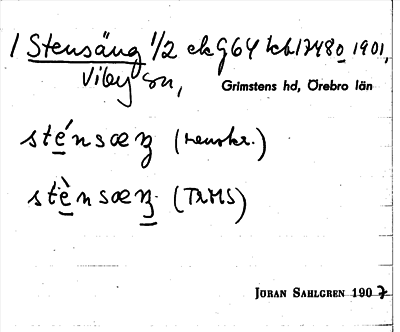 1 Stensäng 1/2 ek G64 kb 17480 1901,
Viby sn,
Grimstens hd, Örebro län
sténsæŋ (renskr.)
stènsæŋ (TRMS)
JÖRAN SAHLGREN 1907